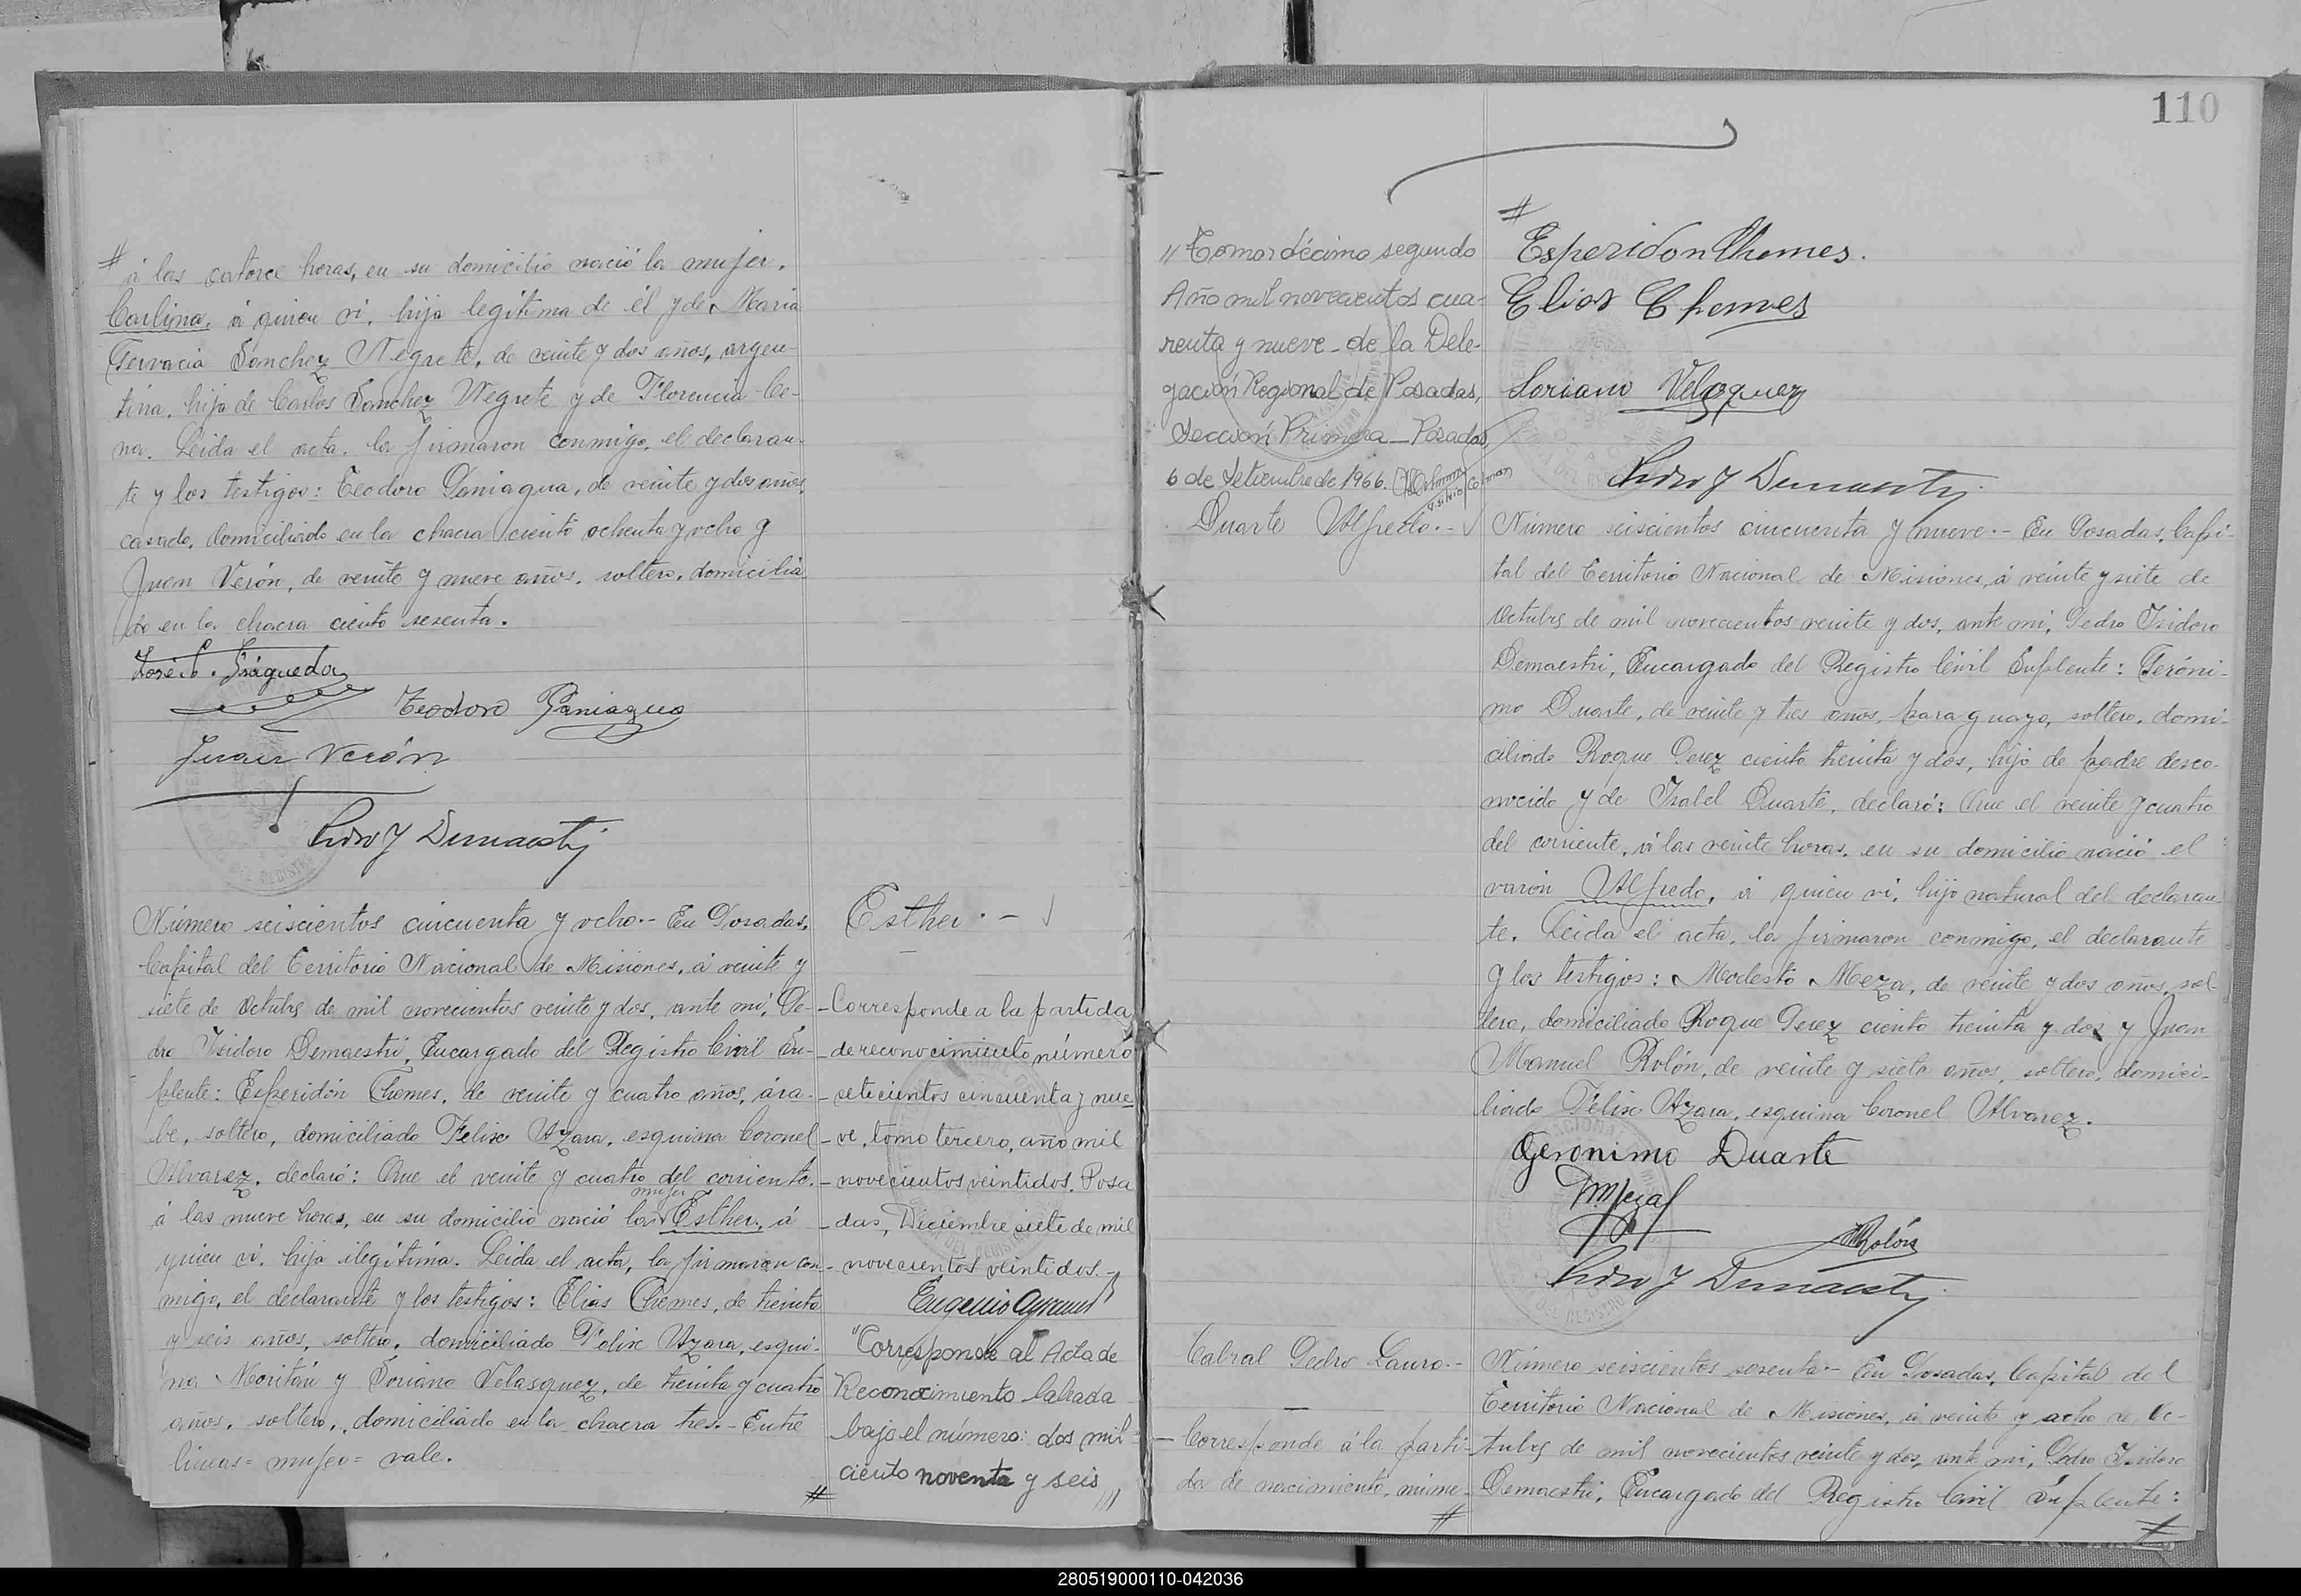 # á las catorce horas, en su domicilio nació la mujer,
Carlina, á quien vi, hija legítima de él y de Maria
Gervacia Sanchez Negrete, de veinte y dos años, argen-
tina, hija de Carlos Sanchez Negrete y de Florencia Ce-
na. Leida el acta, la firmaron conmigo, el declaran-
te y los testigos: Teodoro Paniagua, de veinte y dos años,
casado, domiciliado en la chacra ciento ochenta y ocho y
Juan Verón, de veinte y nueve años, soltero, domicilia-
do en la chacra ciento sesenta.
Teodoro Paniagua
Juan Verón
Pedro Y Demaestri
Número seiscientos cincuenta y ocho.- En Posadas,
Capital del Territorio Nacional de Misiones, á veinte y
siete de Octubre de mil novecientos veinte y dos, ante mi, Pe-
dro Isidoro Demaestri, Encargado del Registro Civil Su-
plente: Esperidón Chemes, de veinte y cuatro años, ára-
be, soltero, domiciliado Felix Azara, esquina Coronel
Alvarez, declaró: Que el veinte y cuatro del corriente,
mujer
á las nueve horas, en su domicilio nació la Esther, á
quien vi, hija ilegítima. Leida el acta, la firmaron con-
migo, el declarante y los testigos: Elias Chemes, de treinta
y seis años, soltero, domiciliado Felix Azara, esqui-
na Moritán y Soriano Velasquez, de treinta y cuatro
años, soltero, domiciliado en la chacra tres.- Entre
lineas = mujer = vale.
Esther.-
-Corresponde a la partida
-de reconocimiento número
-setecientos cincuenta y nue
-ve, tomo tercero, año mil
-novecientos veintidos. Posa
-das, Diciembre siete de mil
-novecientos veintidos.-
Eugenio
"Corresponde al Acta de
Reconocimiento labrada
bajo el número: dos mil
ciento noventa y seis
#
110
"Tomo décimo segundo
Año mil novecientos cua-
renta y nueve - de la Dele-
gación Regional de Posadas,
Sección Primera - Posadas,
6 de Setiembre de 1966.
#
Esperidon Chemes.
Elias Chemes
Soriano Velazquez
Pedro Y Demaestri
Duarte Alfredo.-
Número seiscientos cincuenta y nueve.- En Posadas, Capi-
tal del Territorio Nacional de Misiones, á veinte y siete de
Octubre de mil novecientos veinte y dos, ante mi, Pedro Isidoro
Demaestri, Encargado del Registro Civil Suplente: Geróni-
mo Duarte, de veinte y tres años, paraguayo, soltero, domi-
ciliado Roque Perez ciento treinta y dos, hijo de padre desco-
nocido y de Isabel Duarte, declaró: Que el veinte y cuatro
del corriente, á las veinte horas, en su domicilio nació el
varón Alfredo, á quien vi, hijo natural del declaran-
te. Leida el acta, la firmaron conmigo, el declarante
y los testigos: Modesto Meza, de veinte y dos años, sol-
tero, domiciliado Roque Perez ciento treinta y dos y Juan
Manuel Rolón, de veinte y siete años, soltero, domici-
liado Felix Azara, esquina Coronel Alvarez.
Geronimo Duarte
MMeza
JMRolón
Pedro Y Demaestri
Cabral Pedro Lauro.-
-Corresponde á la parti-
da de nacimiento, núme-
#
Número seiscientos sesenta.- En Posadas, Capital del
Territorio Nacional de Misiones, á veinte y ocho de Oc-
tubre de mil novecientos veinte y dos, ante mi, Pedro Isidoro
Demaestri, Encargado del Registro Civil Suplente:
#
280519000110-042036